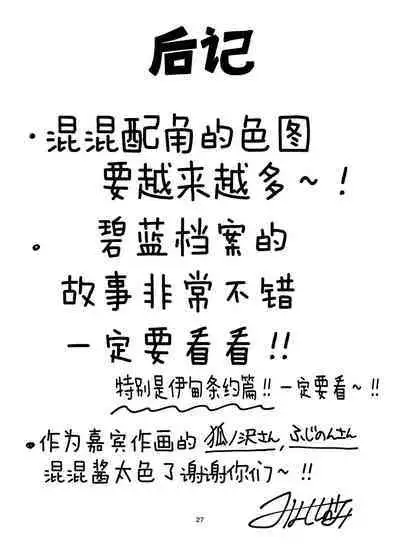 后记
·混混配角的色图
要越来越多~!
。碧蓝档案的
故事非常不错
一定要看看!!
特别是伊甸条约篇!!一定要看~!!
•作为嘉宾作画的 狐ノ沢さん,ふじのんさん
混混酱太色了谢谢你们~!!
27